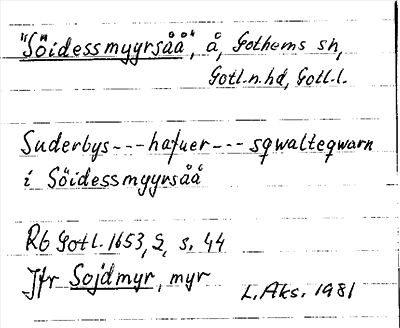 "Söidessmyyrsåå", å, Gothems sn,
Gotl. n. hd, Gotl. l.
Suderbys --- hafuer --- sqwalteqwarn
i Söidessmyyrsåå
Rb Gotl. 1653, 2, s. 44
Jfr Sojdmyr, myr
L. Aks. 1981